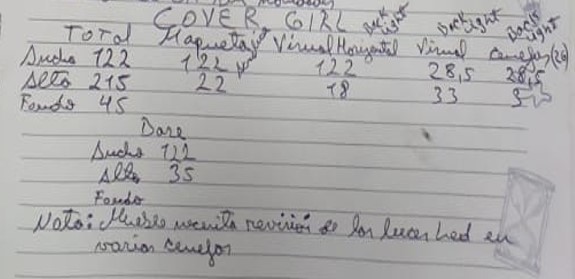 COVER GIRL
Total Maqueta Visual Horizontal Visual Cenefas (26)
Ancho 122 122 122 28,5 28,5
Alto 215 22 18 33
Fondo 45
Base
Ancho 122
Alto 35
Fondo
Nota: Mueble necesita revisión de las luces led en
varias cenefas